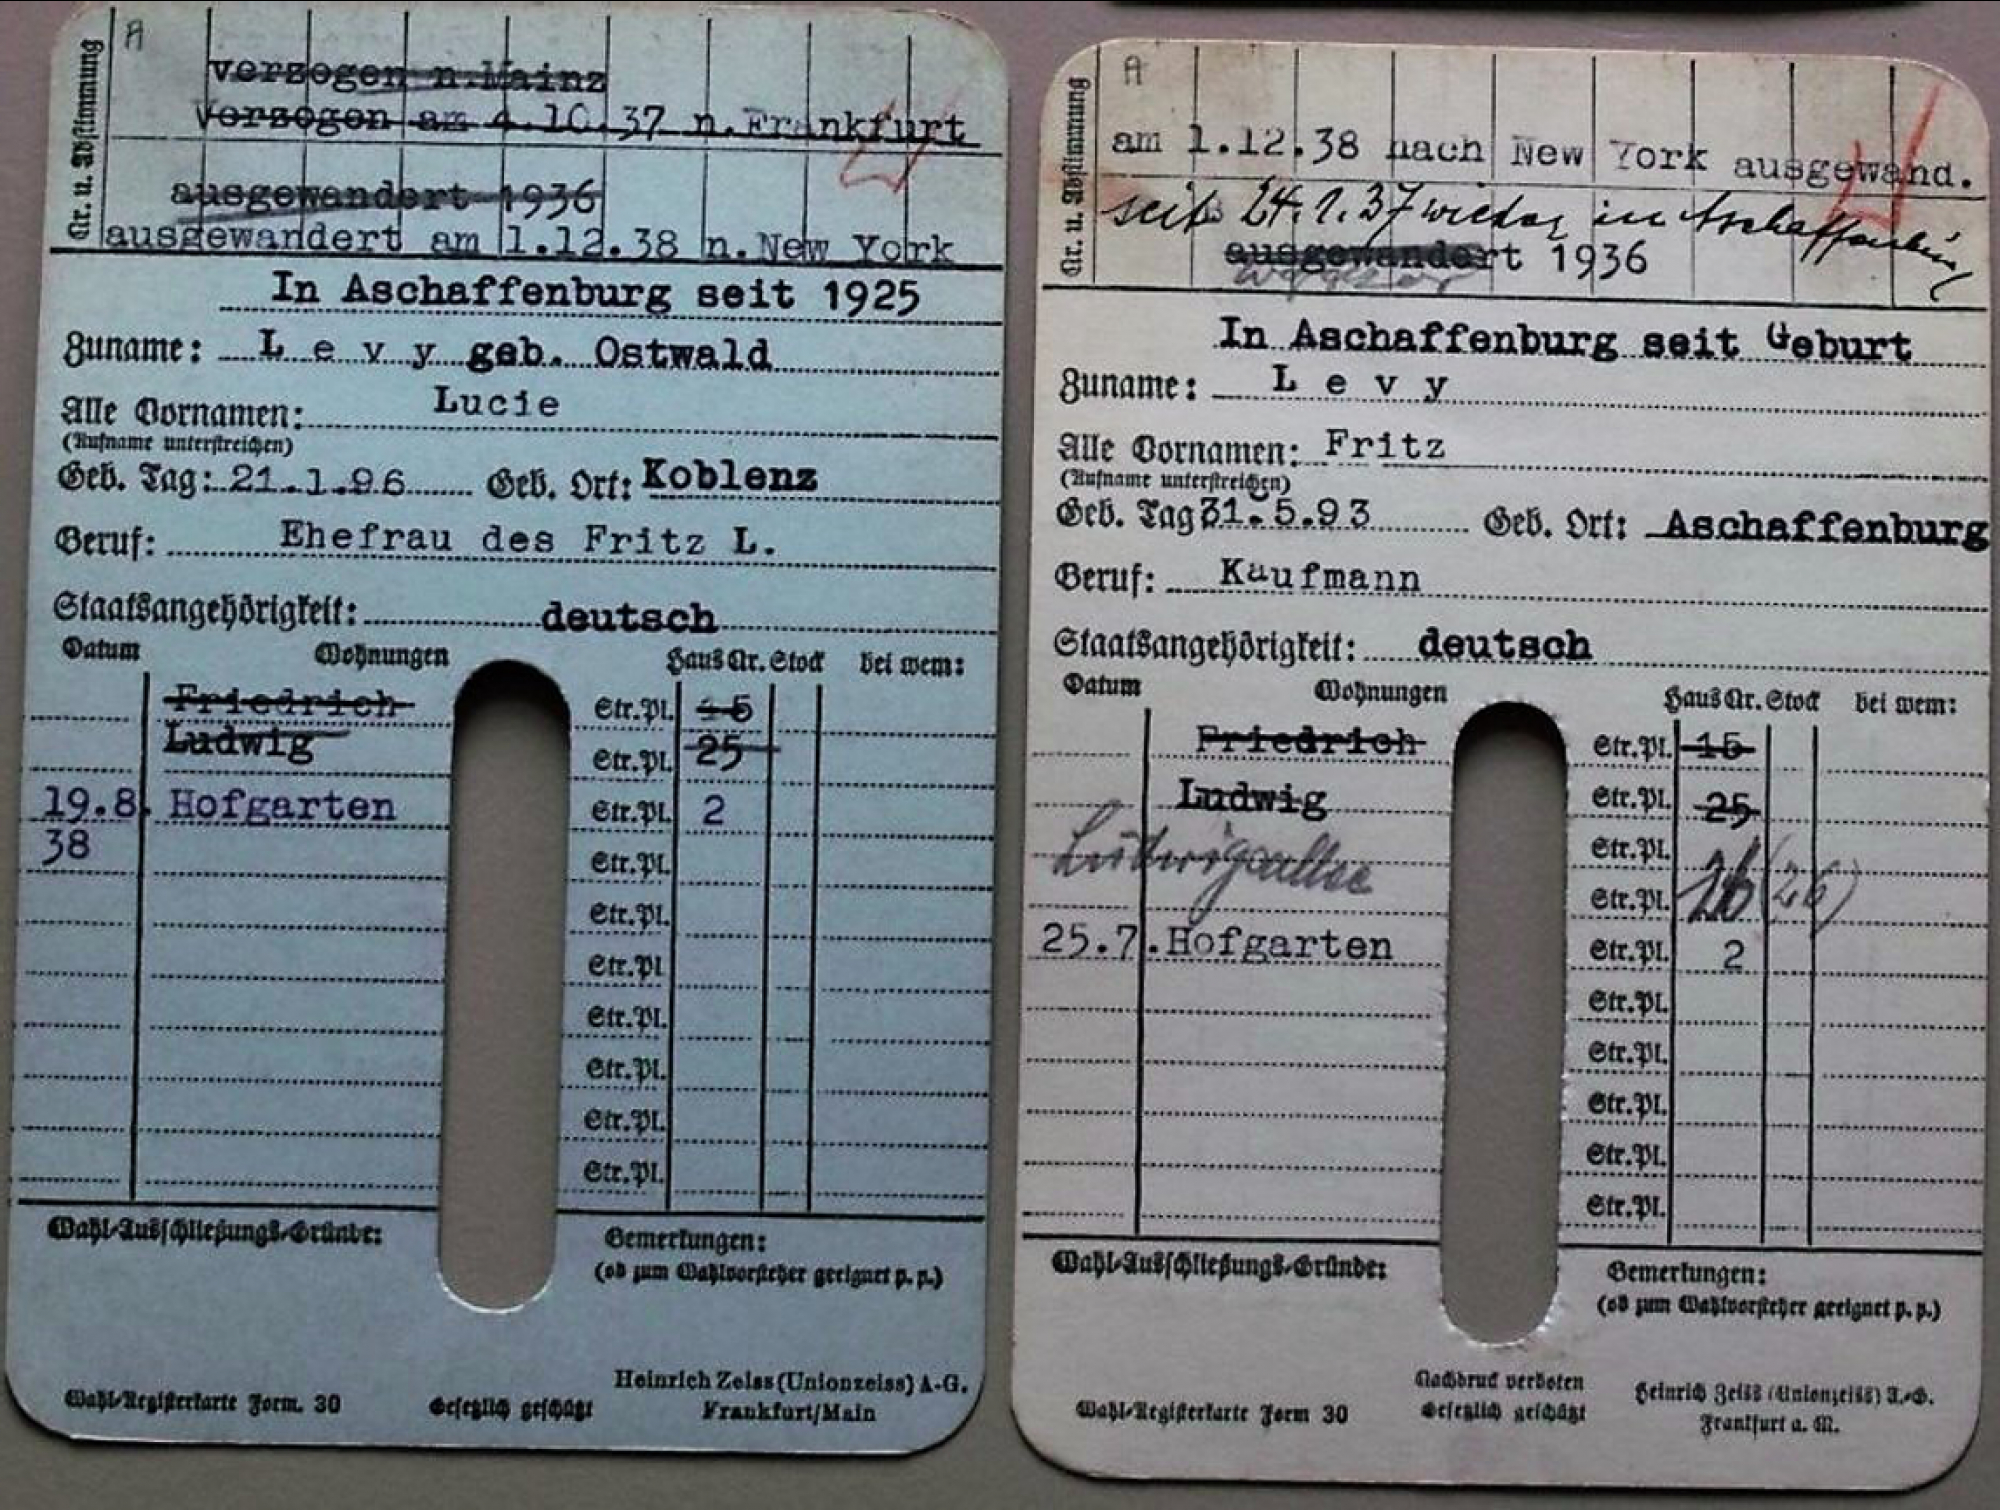 A
Nr. u. Abstimmung
verzogen n.Mainz
Verzogen am 4.10.37 n.Frankfurt
ausgewandert 1936
ausgewandert am 1.12.38 n.New York
In Aschaffenburg seit 1925
Zuname: L e v y geb. Ostwald
Alle Vornamen: Lucie
(Rufname unterstreichen)
Geb. Tag: 21.1.96 Geb. Ort: Koblenz
Beruf: Ehefrau des Fritz L.
Staatsangehörigkeit: deutsch
Datum Wohnungen Haus Nr. Stock bei wem:
Friedrich Str.Pl. 15
Ludwig Str.Pl. 25
19.8. Hofgarten Str.Pl. 2
38 Str.Pl.
Str.Pl.
Str.Pl
Str.Pl.
Str.Pl.
Str.Pl.
Str.Pl.
Wahl-Ausschließungs-Gründe: Bemerkungen:
(ob zum Wahlvorsteher geeignet p. p.)
Heinrich Zeiss (Unionzeiss) A-G.
Wahl-Registerkarte Form. 30 Gesetzlich geschützt Frankfurt/Main
A
Nr. u. Abstimmung
am 1.12.38 nach New York ausgewand.
seit 24.1.37 wieder in Aschaffenburg
ausgewandert 1936
In Aschaffenburg seit Geburt
Zuname: L e v y
Alle Vornamen: Fritz
(Rufname unterstreichen)
Geb. Tag 31.5.93 Geb. Ort: Aschaffenburg
Beruf: Kaufmann
Staatsangehörigkeit: deutsch
Datum Wohnungen Haus Nr. Stock bei wem:
Friedrich Str.Pl. 15
Ludwig Str.Pl. 25
Ludwigsallee Str.Pl.
Str.Pl. (26)
25.7. Hofgarten Str.Pl. 2
Str.Pl.
Str.Pl.
Str.Pl.
Str.Pl.
Str.Pl.
Wahl-Ausschließungs-Gründe: Bemerkungen:
(ob zum Wahlvorsteher geeignet p. p.)
Nachdruck verboten Heinrich Zeiss (Unionzeiss) A.-G.
Wahl-Registerkarte Form 30 Gesetzlich geschützt Frankfurt a. M.